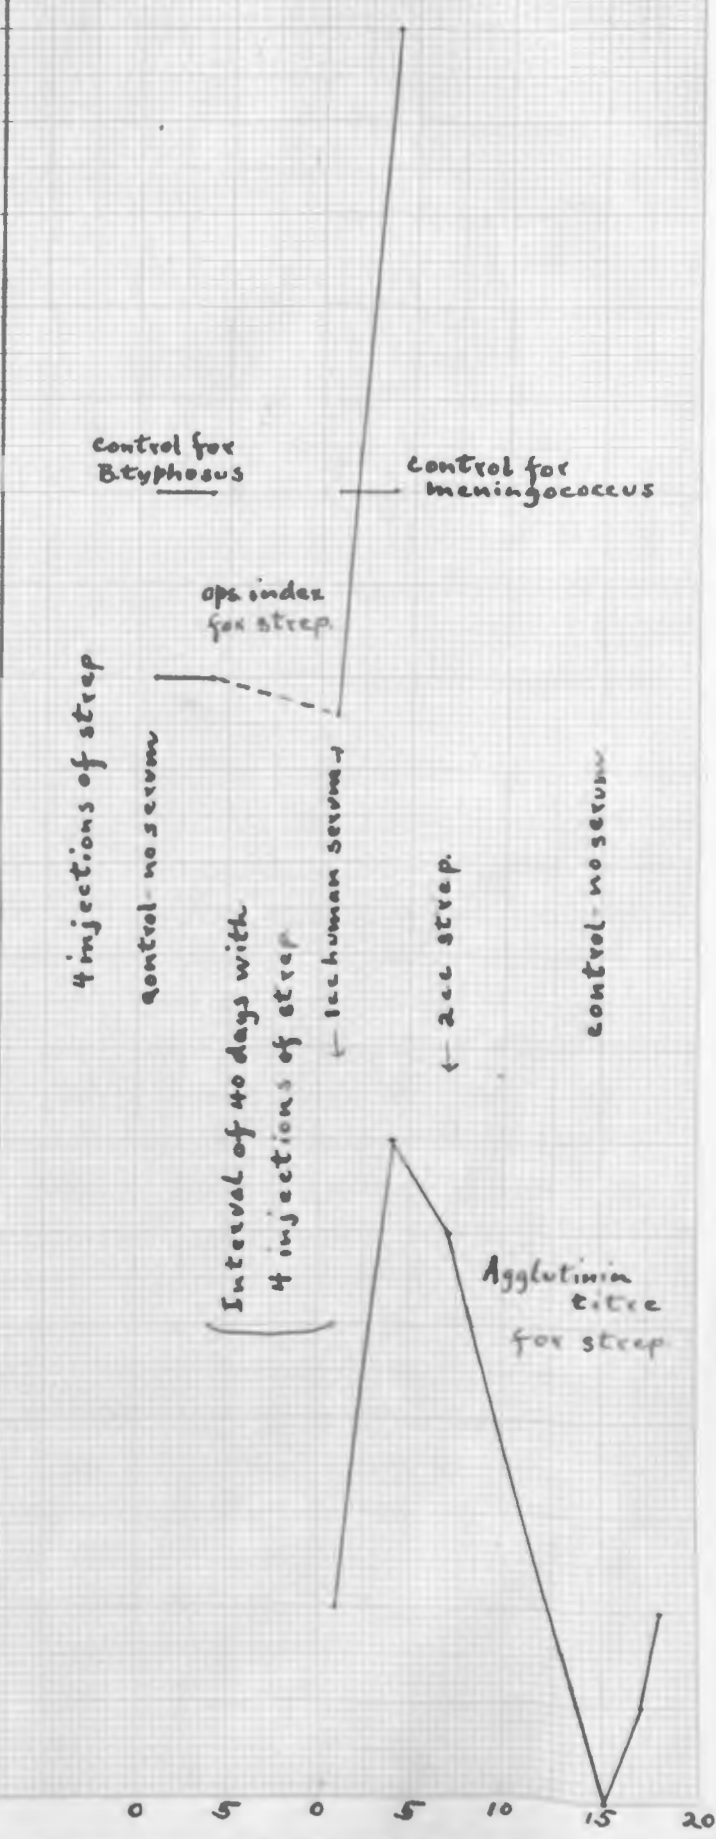 control for
B.typhosus
control for
meningococcus
ops. index
for strep.
4 injections of strep
control - no serum
Interval of 40 days with
4 injections of strep
← 1cc human serum
← 2cc strep.
control - no serum
Agglutinin
titre
for strep.
0 5 0 5 10 15 20